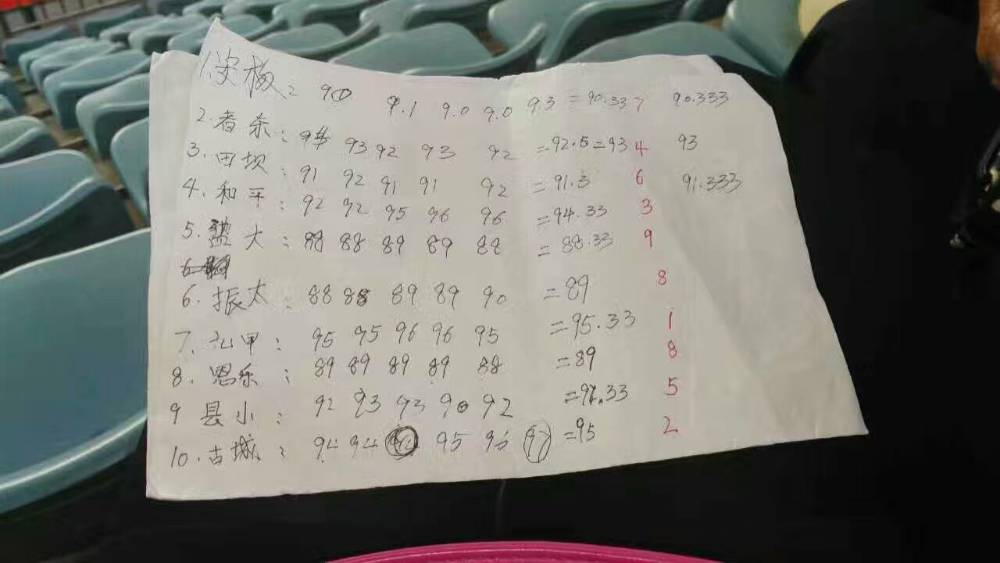 1.安板: 90 9.1 9.0 9.0 9.3 =90.337 90.333
2.者东: 93 92 93 92 =92.5=93 4 93
3.田坝: 91 92 91 91 92 =91.3 6 91.333
4.和平: 92 92 95 96 96 =94.33 3
5.大: 88 88 89 89 88 =88.33 9
6.振太: 88 88 89 89 90 =89 8
7.九甲: 95 95 96 96 95 =95.33 1
8.恩乐: 89 89 89 89 88 =89 8
9 县小: 92 93 93 90 92 =91.33 5
10.古城: 94 94 95 96 97 =95 2